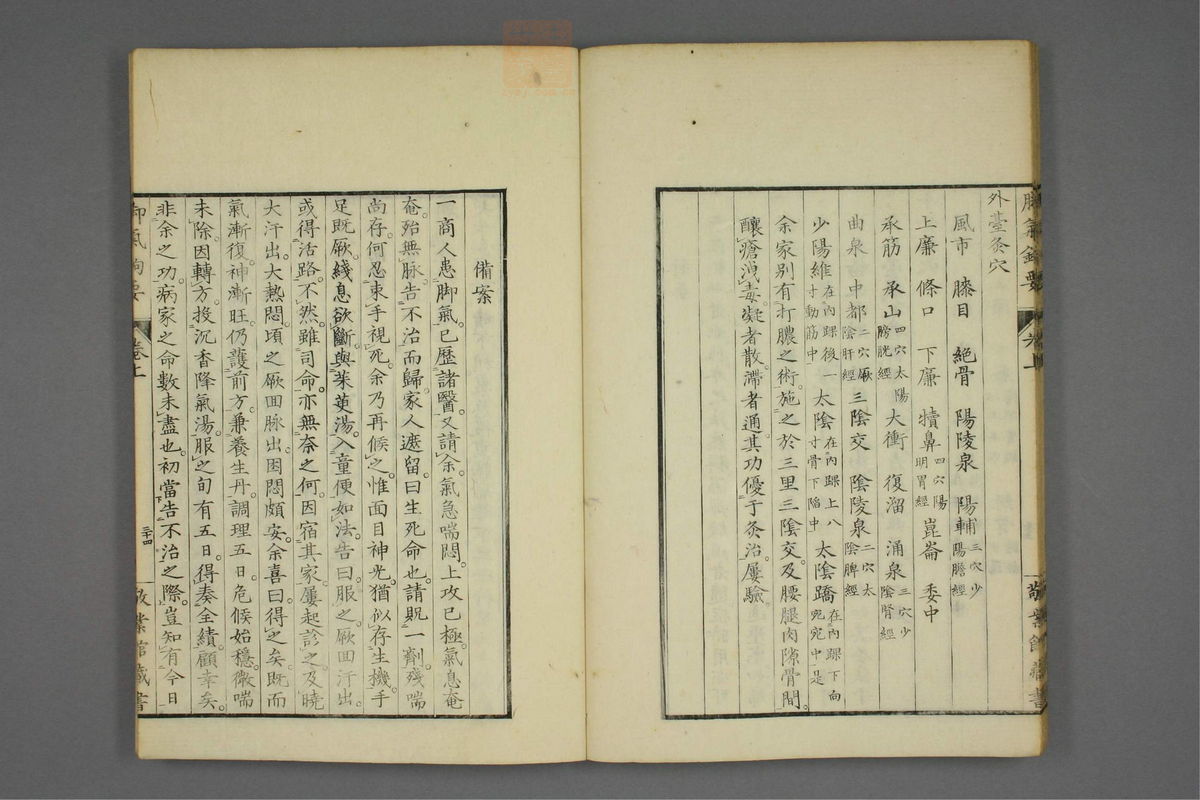 外臺灸穴
風市　膝目　絕骨　陽陵泉　陽輔三穴少陽膽經
上廉　條口　下廉　犢鼻四穴陽明胃經　崑崙　委中
承筋　承山四穴太陽膀胱經　大衝　復溜　涌泉三穴少陰腎經
曲泉　中都二穴厥陰肝經　三陰交　陰陵泉二穴太陰脾經
少陽維在內踝後一寸動筋中　太陰在內踝上八寸骨下陷中　太陰蹻在內踝下向宛宛中是
余家别有打膿之術。施之於三里三陰交。及腰腿肉隙骨間。
釀瘡洩毒。凝者散。滯者通。其功優于灸治。屢驗。
備案
一商人患脚氣。已歷諸醫。又請余。氣急喘悶。上攻已極。氣息奄
奄。殆無脉。告不治而歸。家人遮留。曰生死命也。請貺一劑。殘喘
尚存。何忍束手視死。余乃再候之。惟面目神光。猶似存生機。手
足既厥。綫息欲斷。與茱萸湯。入童便如法。告曰。服之。厥回汗出。
或得活路。不然。雖司命。亦無奈之何。因宿其家。屢起診之。及曉
大汗出。大熱悶。頃之厥回脉出。困悶頗安。余喜曰。得之矣。既而
氣漸復。神漸旺。仍護前方。兼養生丹。調理五日。危候始穩。微喘
未除。因轉方。投沉香降氣湯。服之旬有五日。得奏全績。顧幸矣。
非余之功。病家之命數未盡也。初當告不治之際。豈知有今日
卷上
三十四